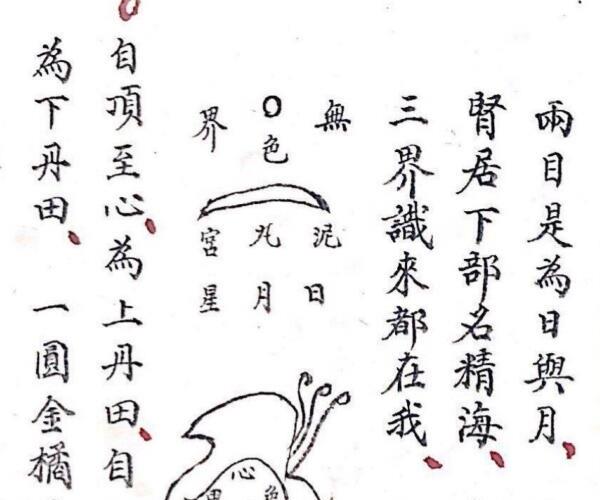 兩目是為日與月
腎居下部名精海
三界識來都在我
無色界
泥九宮
日月星
心
色
界
自頂至心為上丹田自
為下丹田 一圓金橘